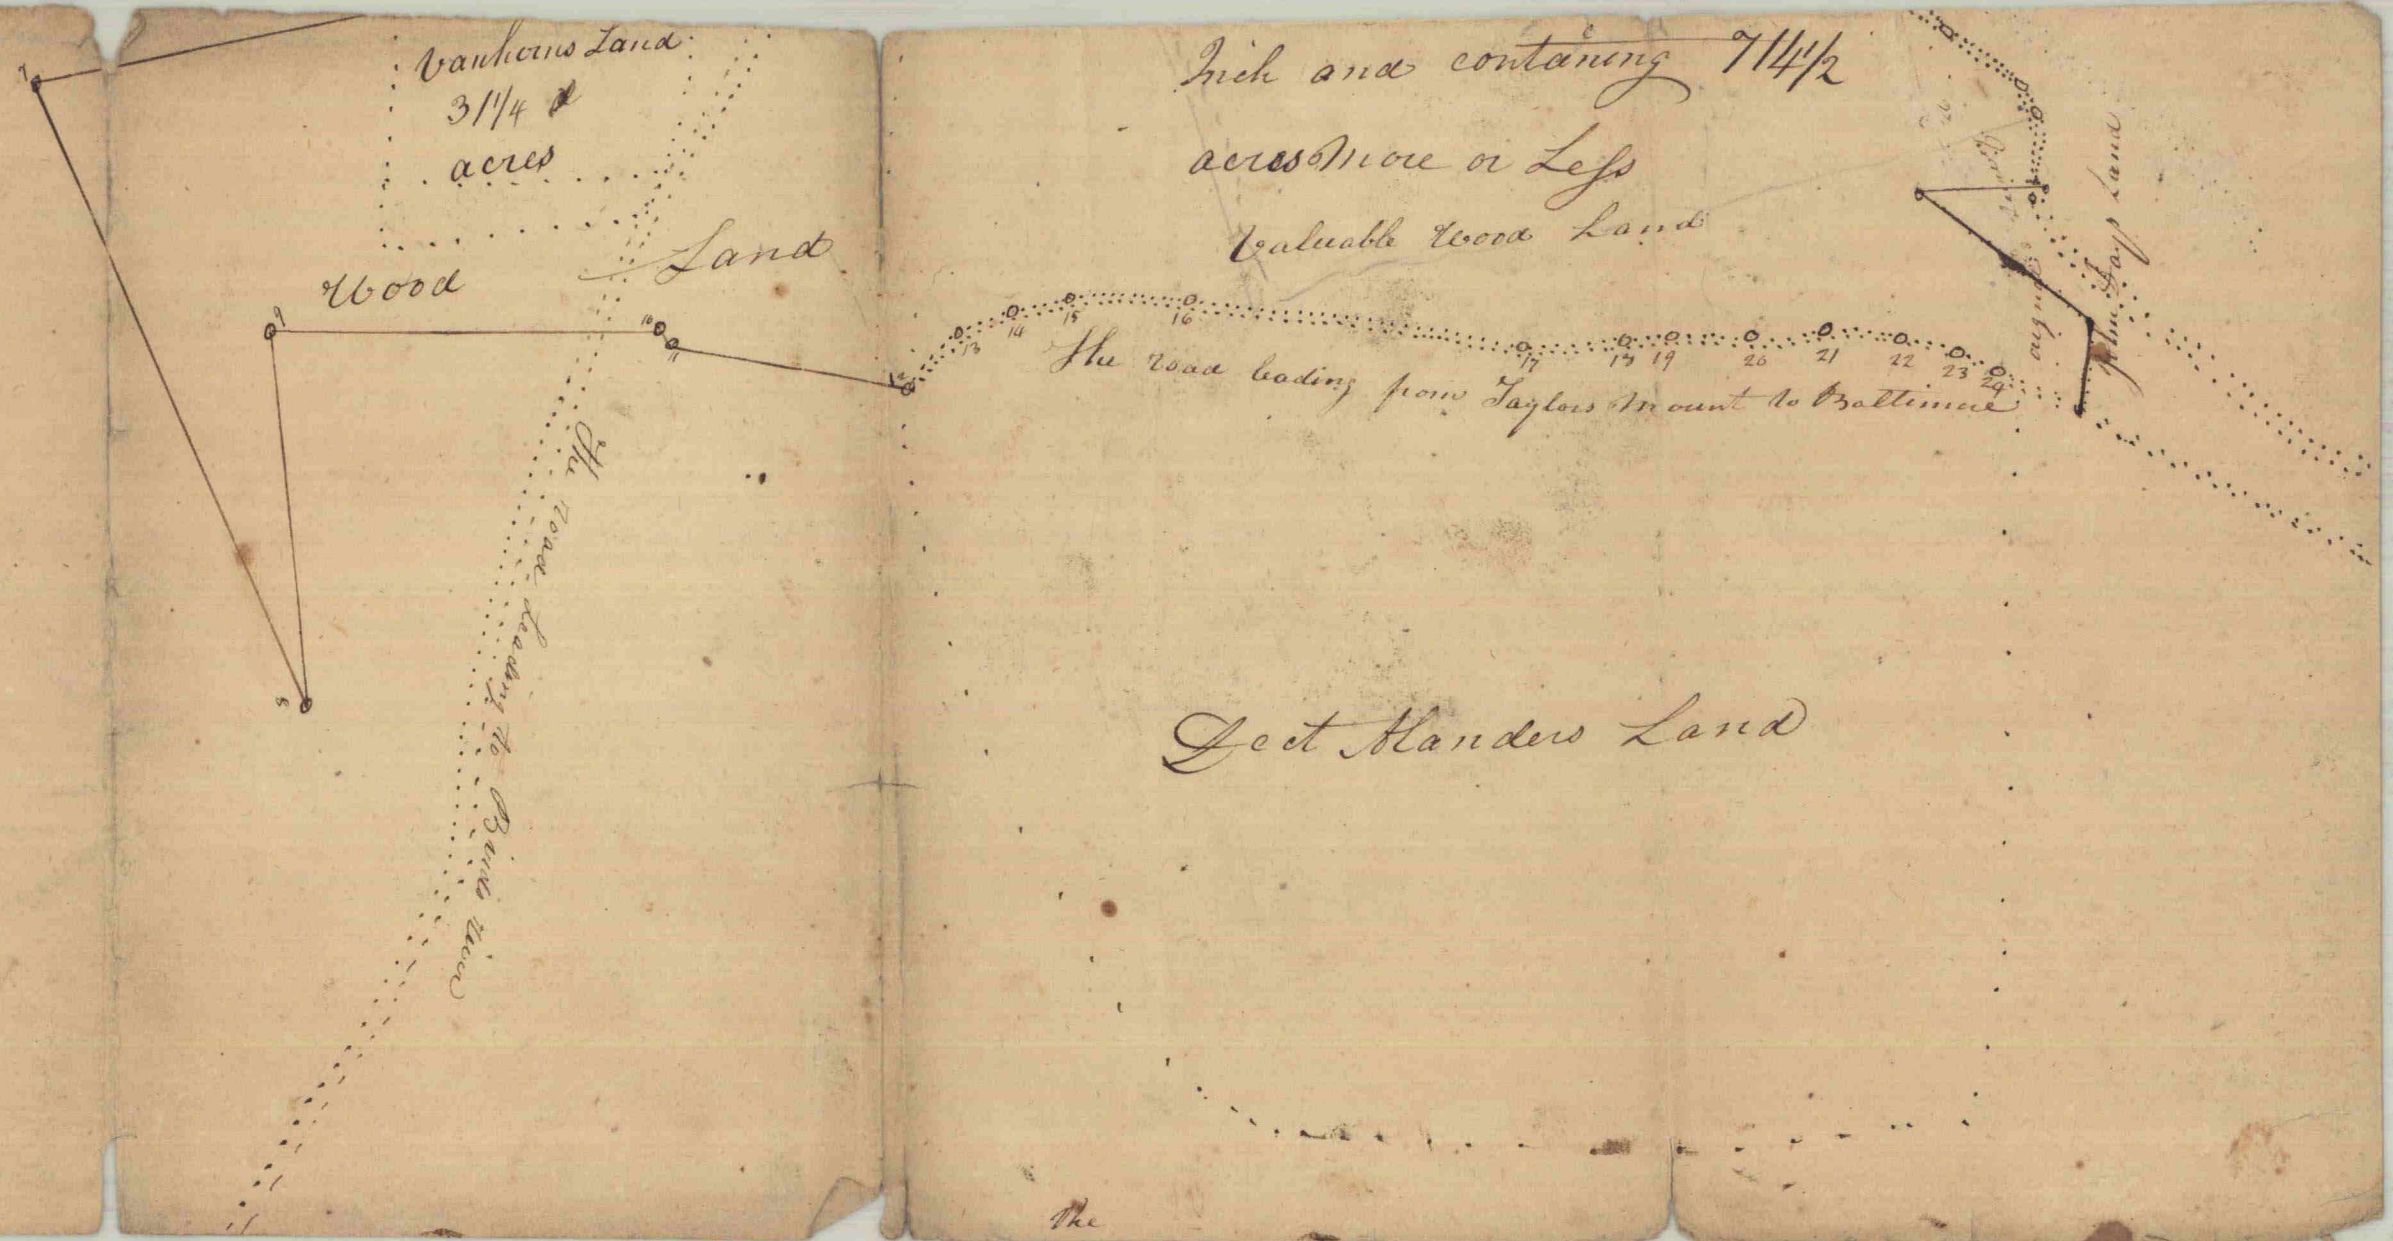 Vanhorns Land
31 1/4
acres
Wood Land
7
8
9
10
11
12
The road Leading to Birds river
Inch and contäning 714 1/2
acres More or Less
Valuable Wood Land
13
14
15
16
17
18
19
20
21
22
23
24
The road leading from Taylors Mount to Baltimore
John Days Land
Doct Manders Land
The